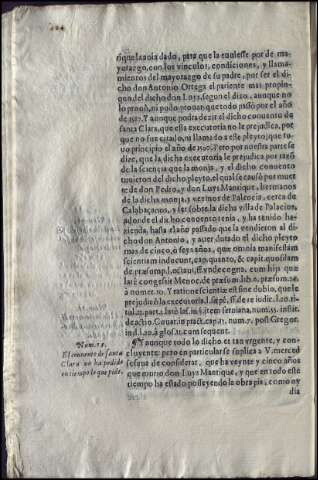 tique la auia dado, para que la tuuiesse por de ma-
yorazgo, con los vinculos, condiciones, y llama-
mientos del mayorazgo de su padre, por ser el di-
cho don Antonio Ortega el pariente mas propin-
quo del dicho don Luys, segun el dixo, aunque no
lo prouò, ni pudo prouar: que todo passò por el año
de Y aunque podra dezir el dicho conuento de
santa Clara, que esta executoria no le perjudica, por
que no fue citado, ni llamado a este pleyto, que tu-
uo principio el año de Pero por nuestra parte se
dize, que la dicha executoria le perjudica por razõ
de la sciencia que la monja, y el dicho conuento
tuuieron del dicho pleyto, el qual se causò por muer-
te de don Pedro, y don Luys Manrique, hermanos
de la dicha monja, vezinos de Palacios, cerca de
Calabaçanos, y ser sobre la dicha villa de Palacios,
y olor de el dicho conuento tenia, y ha tenido ha-
zienda, hasta el año passado que la vendieron al di-
cho don Antonio, y auer durado el dicho pleyto
mas de cinco, ò seys años, quæ omnia manifestam
scientiam inducunt, cap. quanto, & capit. quosdam
de præsompt. vnde cogna. cum hijs quæ
latè congesit Menoc. de præsum. lib. 6. præsum.
à numer. Y ratione scientiæ est sine dubio, que le
perjudicò la executoria, l. sæpè, ff. de re iudic.
tit. part. latè Ias. in §. item seruiana, num. instit.
de actio. Couar. in pract. cap. num. 7. post Gregor.
ind. l. glos. at. consequent.
Num.
El conuento de santa
Clara no ha pedido
en tiempo lo que pide.
¶ Y aunque todo lo dicho es tan vrgente, y con-
cluyente: pero en particular se suplica a V. merced
se sirua de considerar, que ha veynte y cinco años
que murio don Luys Manrique, y que en todo este
tiempo ha estado posseyendo la obra pia, como oy
dia